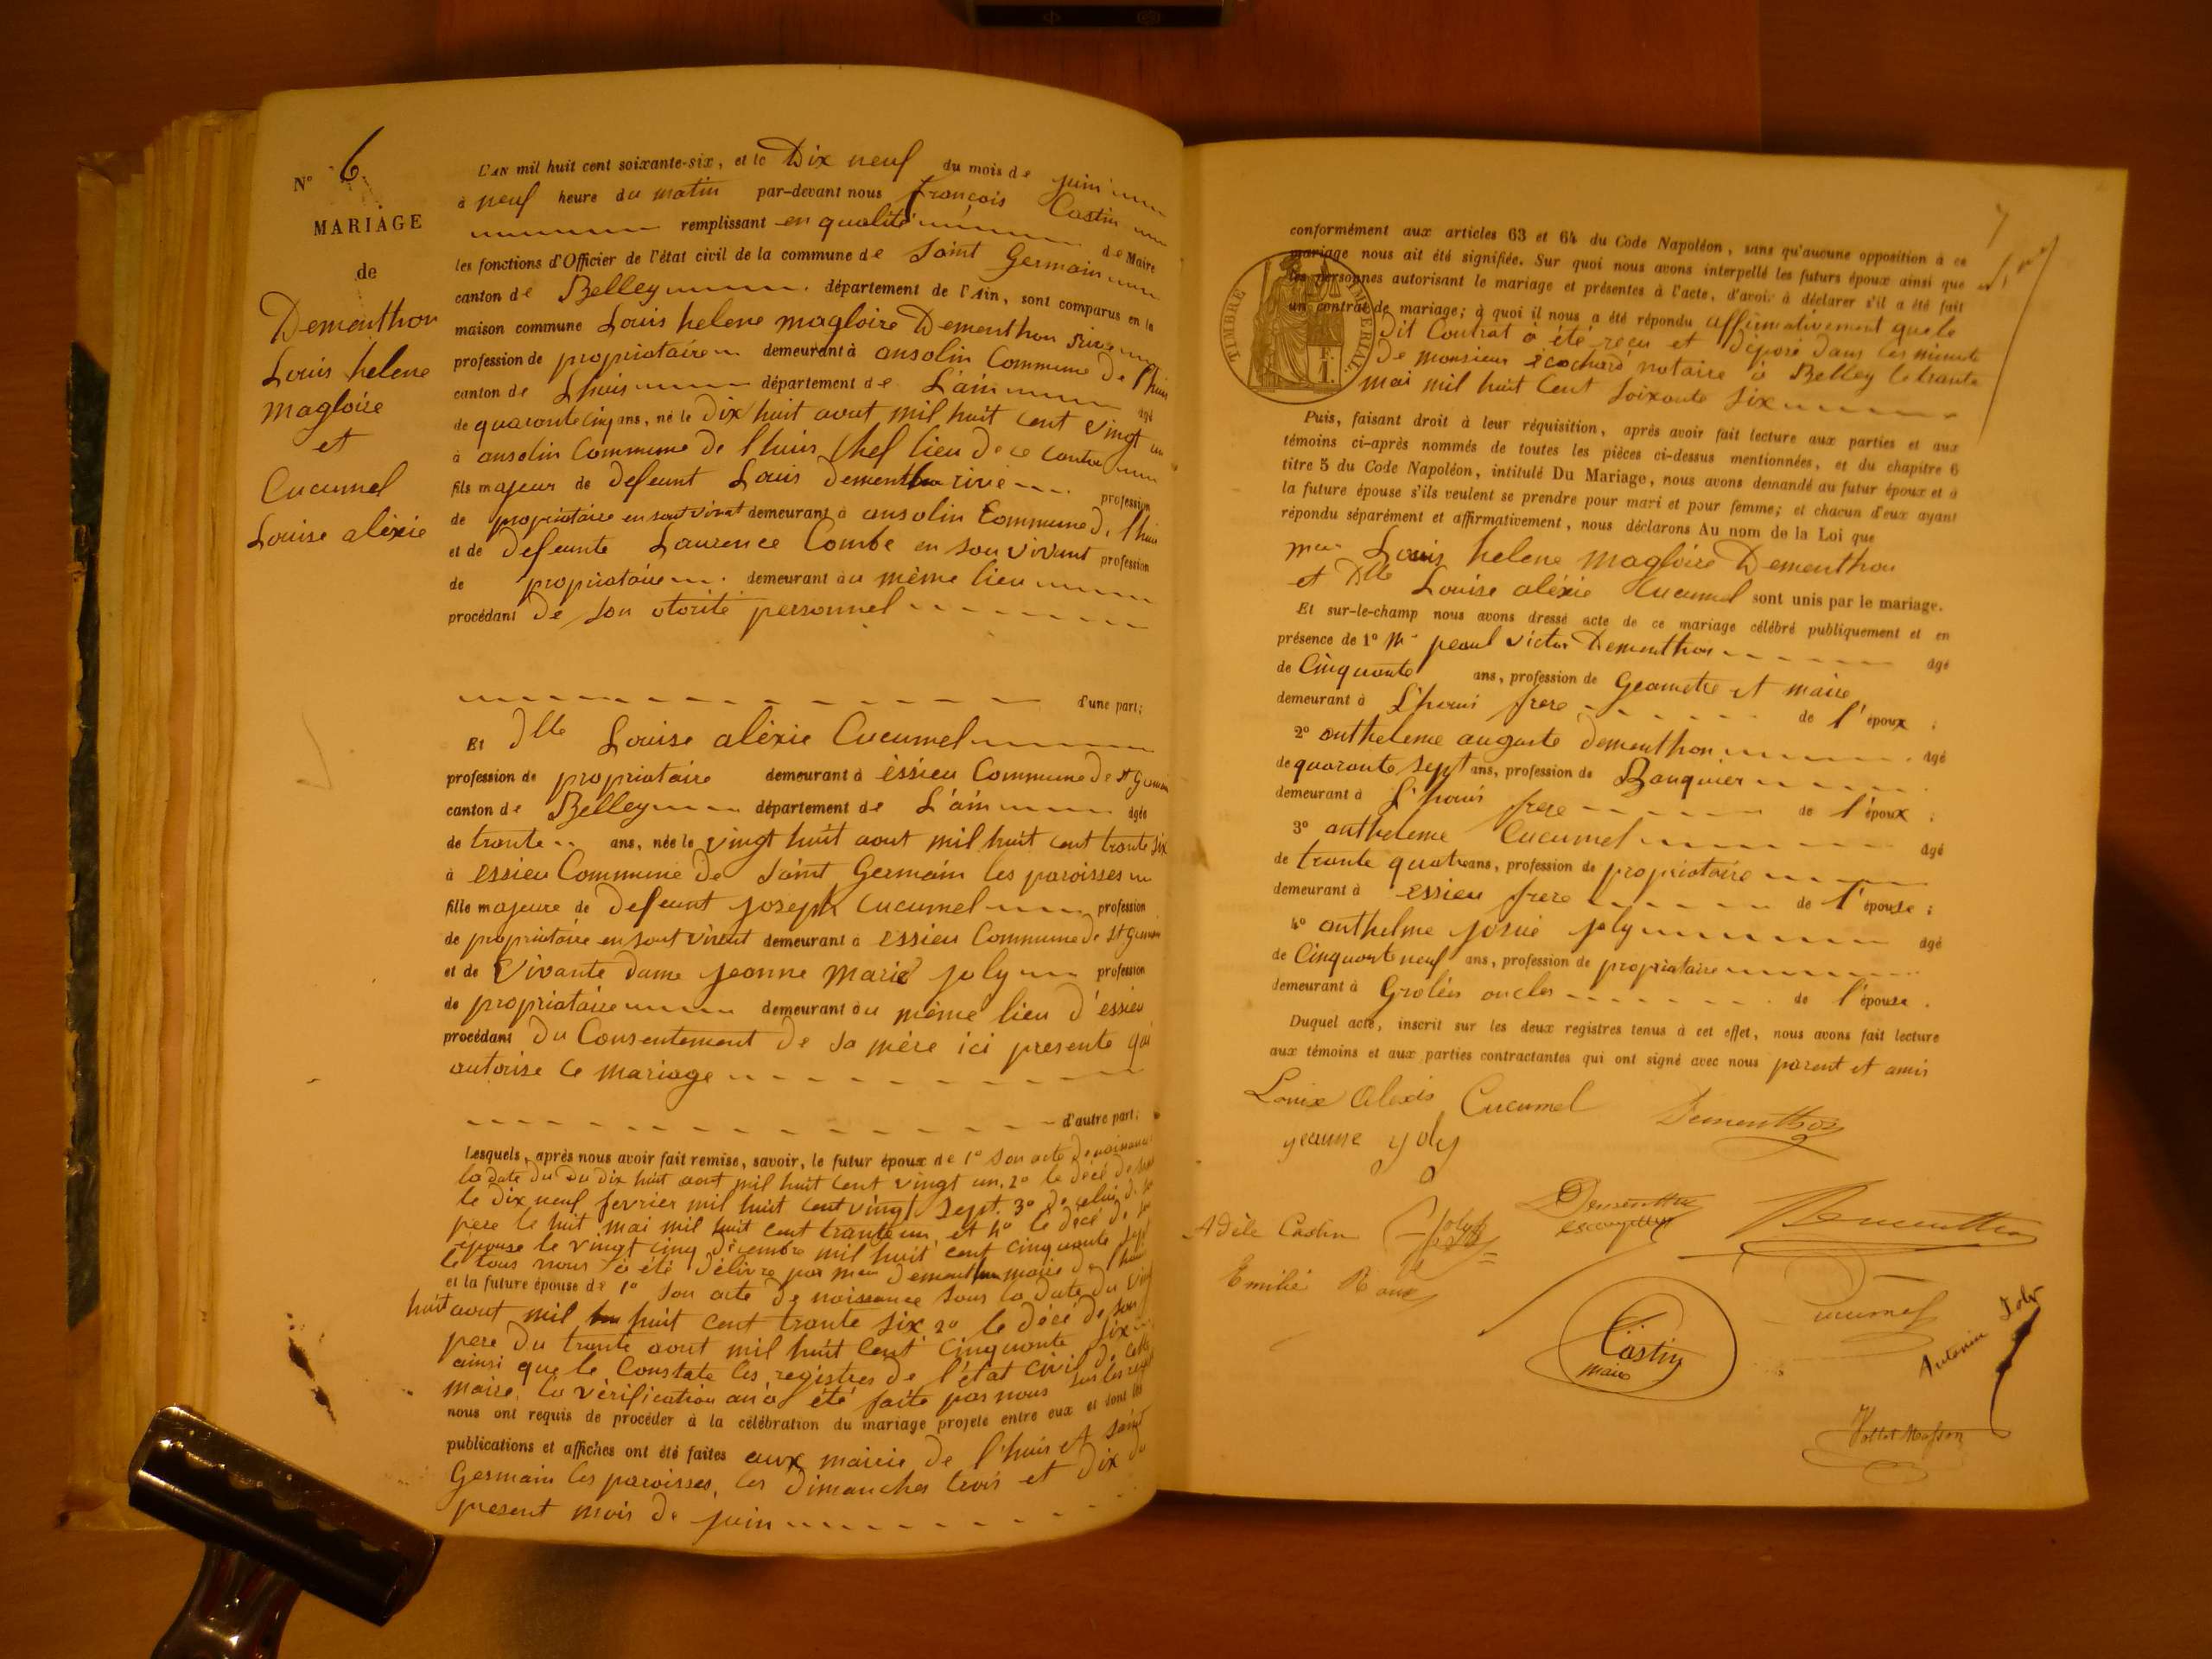 N° 6
MARIAGE
de
Dementhon
Louis helene
magloire
et
Cucumel
Louise aléxie
L'AN mil huit cent soixante-six, et le Dix neuf du mois de juin
à neuf heure du matin par-devant nous françois Castin
remplissant en qualité de Maire
les fonctions d'Officier de l'état civil de la commune de Saint Germain
canton de Belley département de l'Ain, sont comparus en la
maison commune Louis helene magloire Dementhon
profession de propriataire demeurant à ansolin Commune de l'huis
canton de Lhuis département de L'ain âgé
de quarante cinq ans, né le Dix huit avut mil huit cent vingt un
à ansolin Commune de lhuis Chef lieu de ce canton
fils majeur de defeunt Louis dementhon profession
de propriataire en sout vivat demeurant à ansolin Commune d. lhuis
et de defeunte Laurence Combe en sou vivant profession
de propriataire demeurant au même lieu
procédant de son otorité personnel
d'une part;
Et Dlle Louise aléxie Cucumel
profession de propriataire demeurant à éssieu Commune de St Germain
canton de Belley département de L'ain âgée
de trante ans, née le vingt huit aout mil huit cent trante six
à essieu Commune de Saint Germain les paroisses
fille majeure de defeunt joseph Cucumel profession
de propriataire en sout vivent demeurant à essieu Commune de St Germain
et de Vivante dame jeanne marie joly profession
de propriataire demeurant au même lieu d'éssieu
procédant du Consentement de sa mère ici presente qui
autorise ce mariage
d'autre part;
Lesquels, après nous avoir fait remise, savoir, le futur époux de 1° son acte de naisance
la date du du dix huit aout mil huit cent vingt un. 2° le décé de
le dix neuf fevrier mil huit cent vingt sept. 3° de celui de
pere le huit mai mil huit cent trante un, et 4° le décé de
épouse le vingt cinq décembre mil huit cent cinquante sept
le tous nous a été délivre par mr dementhon maire de l'huis
et la future épouse de 1° son acte de naissance sous la date du vingt
huit aout mil huit cent trante six 2° le décé de son
pere du trante aout mil huit cent cinquante six
ainsi que le Constate les registres de l'état civil de cette
mairie. la vérification an a été faite par nous sur les
nous ont requis de procéder à la célébration du mariage projeté entre eux et dont les
publications et affiches ont été faites aux mairie de l'huis et saint
Germain les paroisses, les dimanches trois et dix du
present mois de juin
7
conformément aux articles 63 et 64 du Code Napoléon, sans qu'aucune opposition à ce
mariage nous ait été signifiée. Sur quoi nous avons interpellé les futurs époux ainsi que
les personnes autorisant le mariage et présentes à l'acte, d'avoir à déclarer s'il a été fait
un contrat de mariage; à quoi il nous a été répondu affirmativement que le
TIMBRE IMPERIAL
F.
1.
Dit Contrat a été reçu et déposé dans les minute
de monsieur ecochard notaire à Belley le trante
mai mil huit Cent Soixante six
Puis, faisant droit à leur réquisition, après avoir fait lecture aux parties et aux
témoins ci-après nommés de toutes les pièces ci-dessus mentionnées, et du chapitre 6
titre 5 du Code Napoléon, intitulé Du Mariage, nous avons demandé au futur époux et à
la future épouse s'ils veulent se prendre pour mari et pour femme; et chacun d'eux ayant
répondu séparément et affirmativement, nous déclarons Au nom de la Loi que
Louis helene magloire Dementhon
et Dlle Louise aléxie Cucumel sont unis par le mariage.
Et sur-le-champ nous avons dressé acte de ce mariage célébré publiquement et en
présence de 1° Mr peaul victor Dementhon âgé
de Cinquante ans, profession de Geametre et maire
demeurant à L'huis frere de l'époux ;
2° antheleme auguste dementhon âgé
de quarante sept ans, profession de Banquier
demeurant à L'huis frere de l'époux ;
3° antheleme Cucumel âgé
de trante quatre ans, profession de propriataire
demeurant à essieu frere de l'épouse ;
4° anthelme josué joly âgé
de Cinquante neuf ans, profession de propriataire
demeurant à Groléés oncles de l'épouse.
Duquel acte, inscrit sur les deux registres tenus à cet effet, nous avons fait lecture
aux témoins et aux parties contractantes qui ont signé avec nous parent et amis
Louise Alexis Cucumel Dementhon
jeanne joly
Adèle Castin Joly Dementhon Dementhon
Emilie Roux
Cucumel
Castin
maire
Antonin Joly